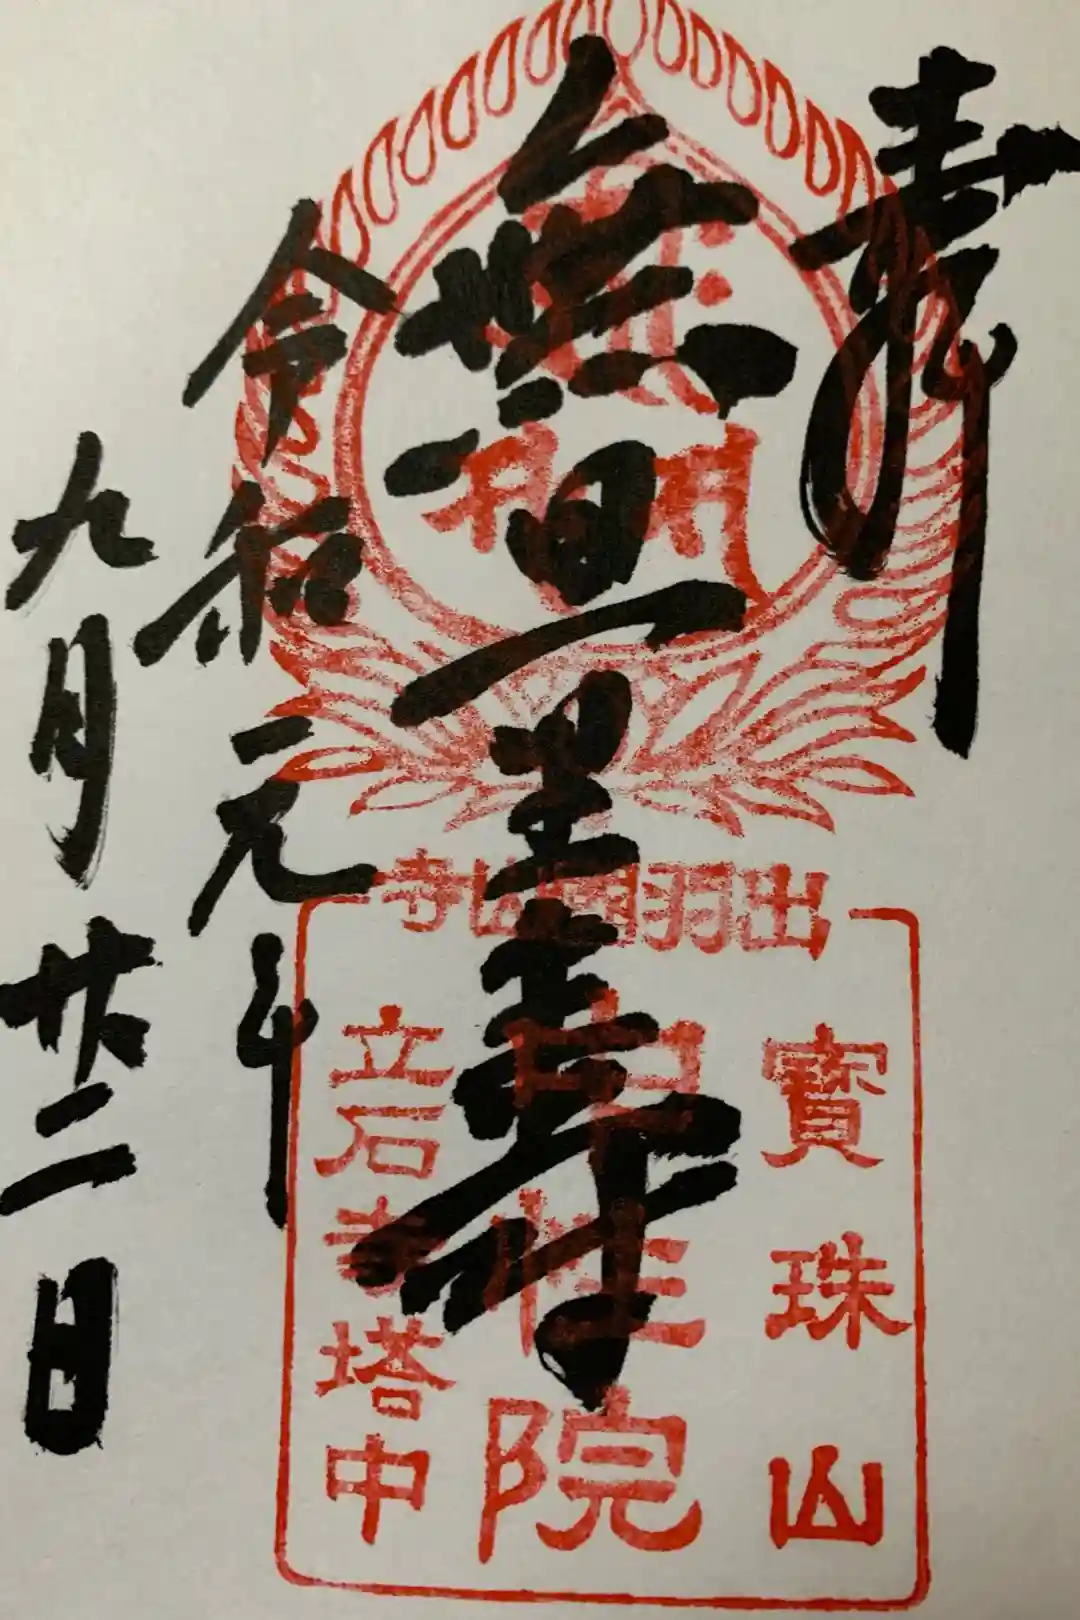 奉拝
無量壽
令和元年
九月廿二日
出羽國山寺
寶珠山
中性院
立石寺塔中